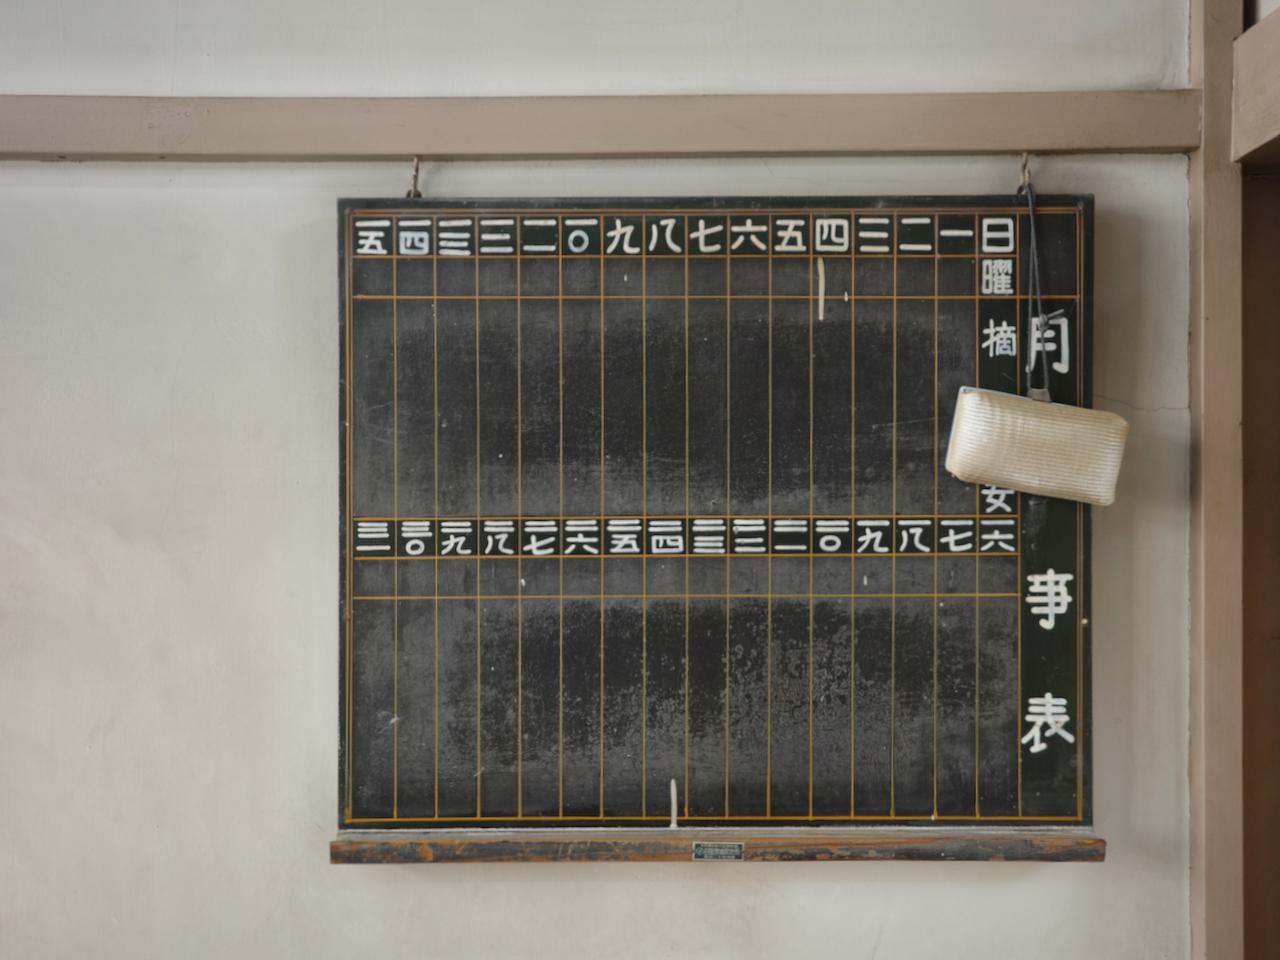 月事表
日曜摘
一 二 三 四 五 六 七 八 九 一〇 一一 一二 一三 一四 一五
一六 一七 一八 一九 二〇 二一 二二 二三 二四 二五 二六 二七 二八 二九 三〇 三一